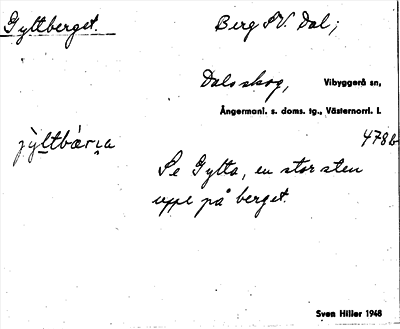 Gyltberget.
Berg SV. Dal;
Dalsskog, Vibyggerå sn,
Ångermanl. s. doms. tg., Västernorrl. l.
478b
Se Gylta, en stor sten
uppe på berget.
Sven Hiller 1948